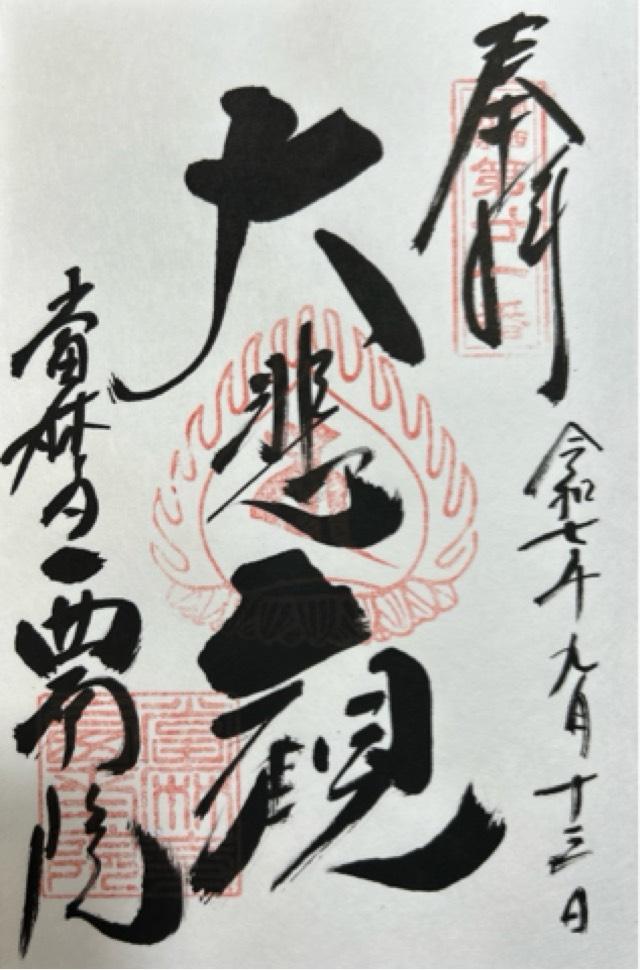 奉拝
第廿一番
令和七年九月十三日
大悲観
當麻寺西南院